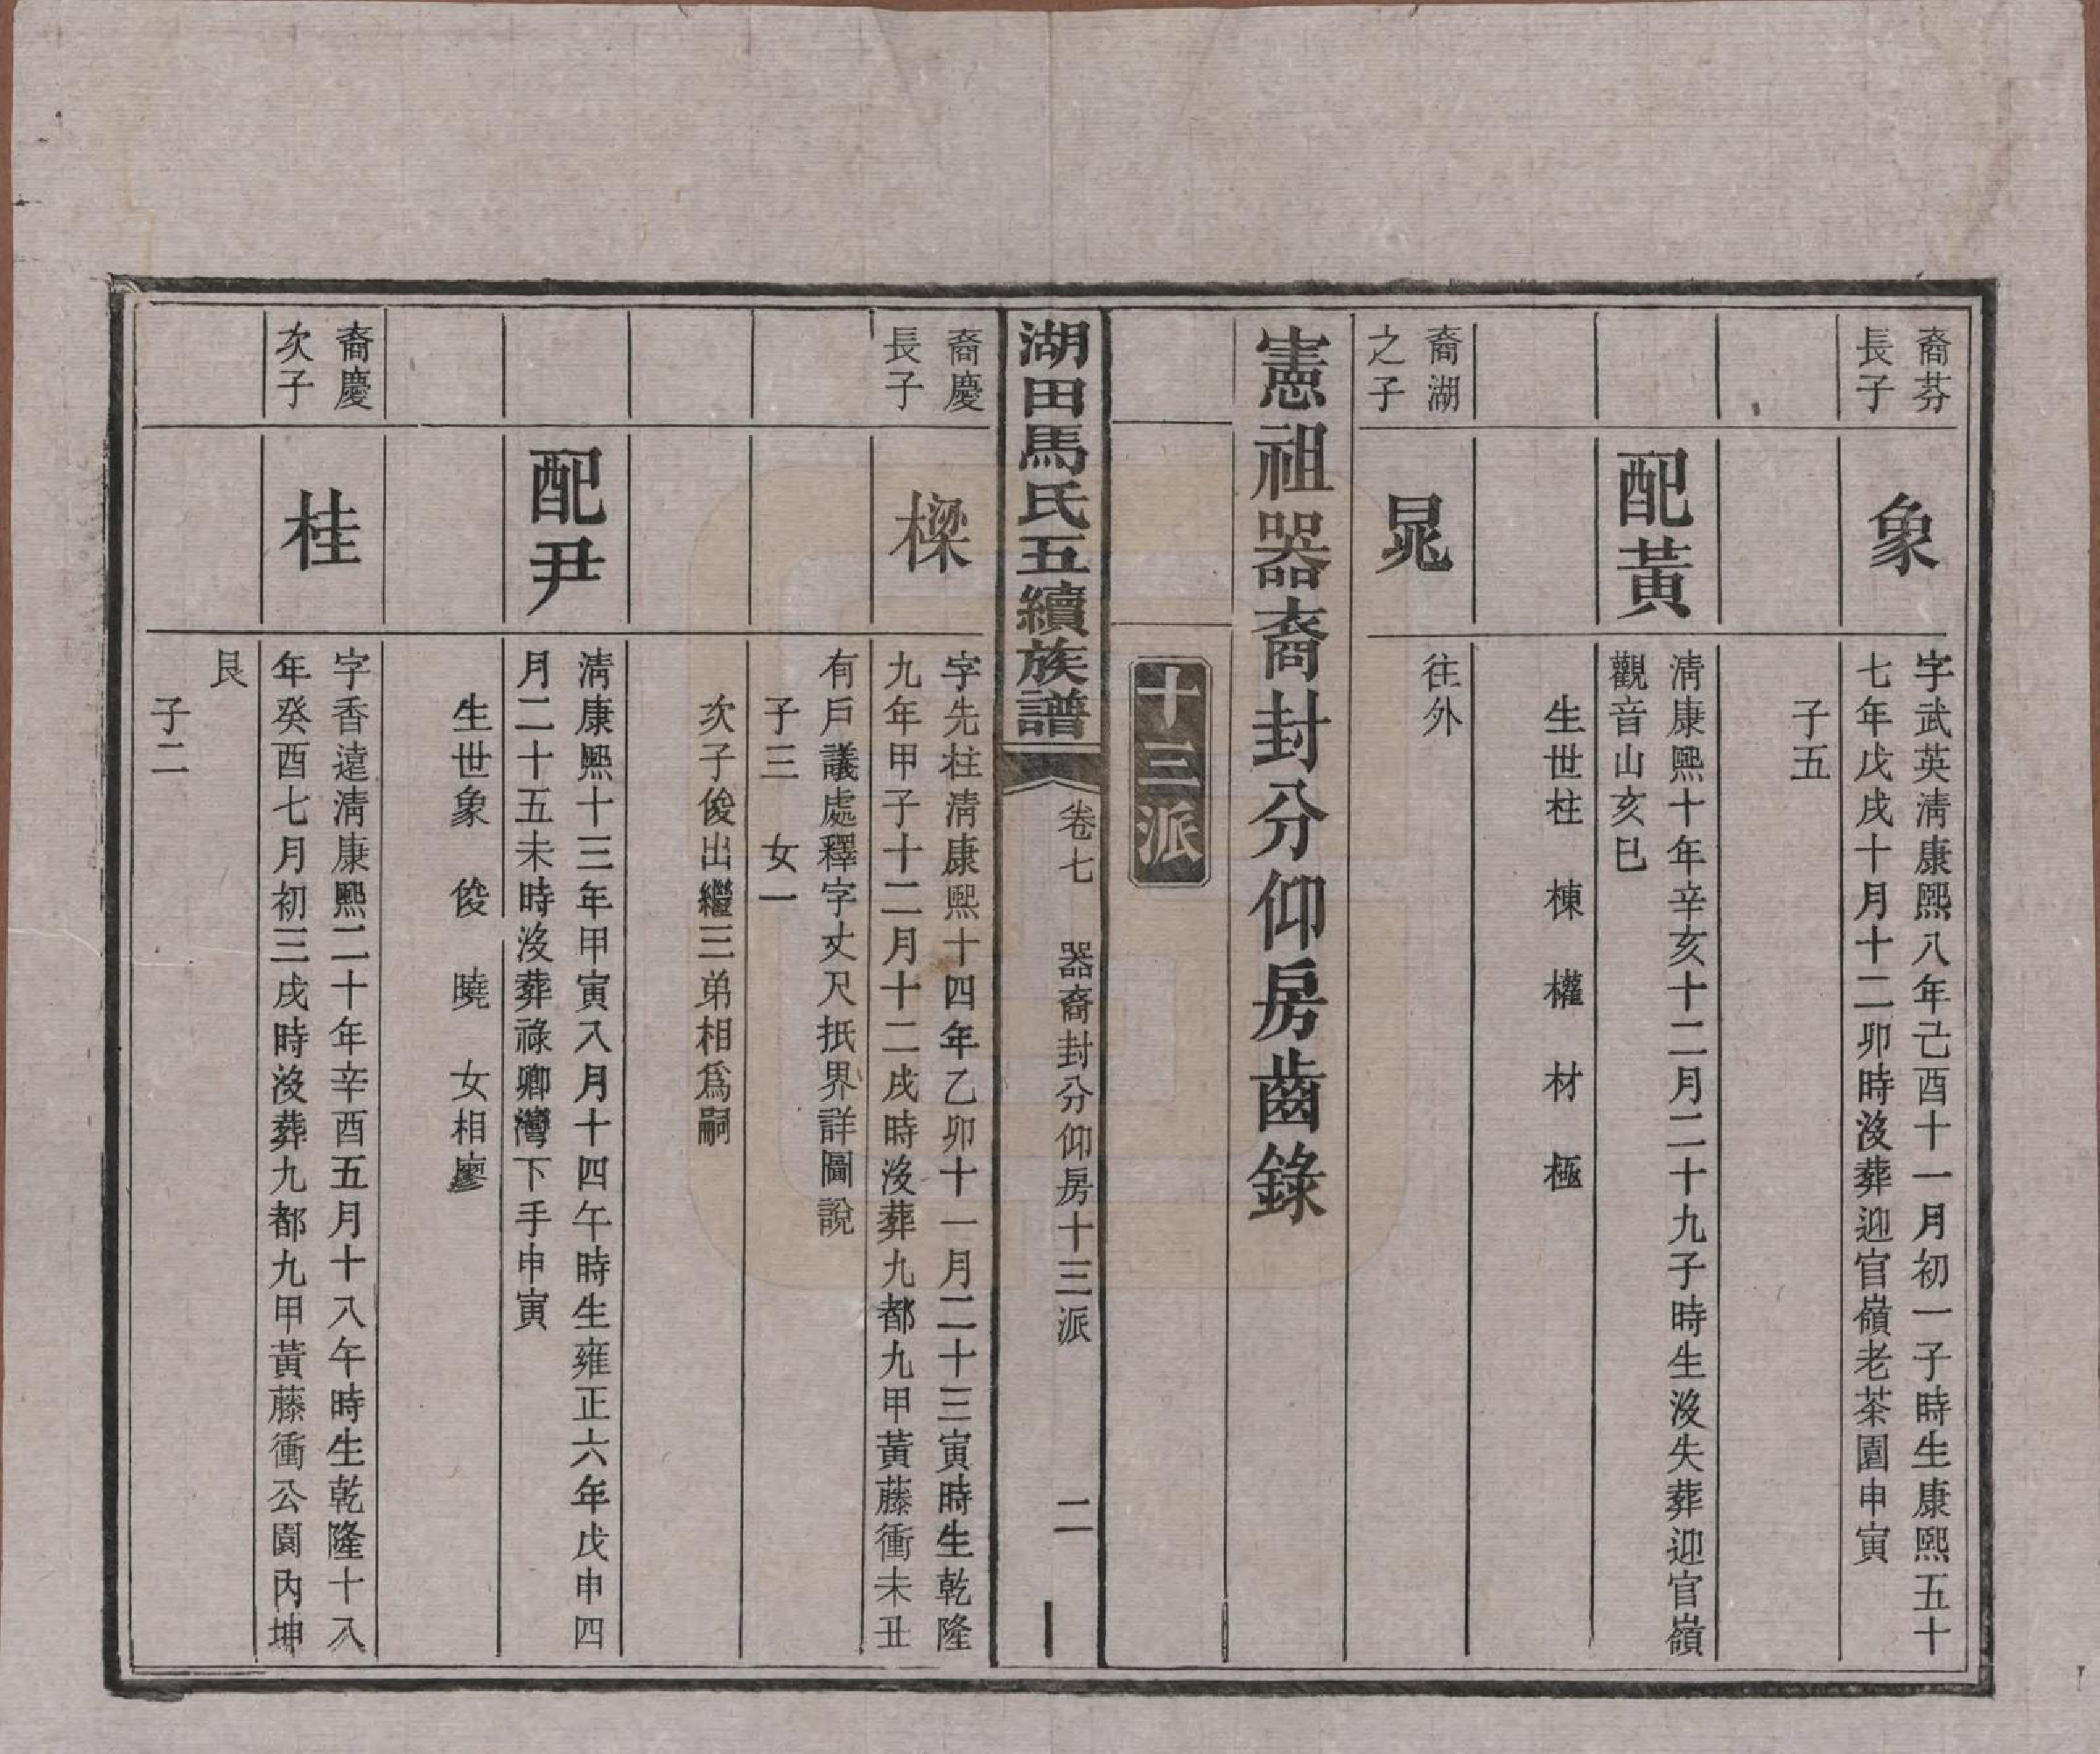 裔芬
長子
象
字武英淸康熙八年己酉十一月初一子時生康熙五十
七年戊戌十月十二卯時沒葬迎官嶺老茶園申寅
子五
配黃
淸康熙十年辛亥十二月二十九子時生沒失葬迎官嶺
觀音山亥巳
生世柱 棟 權 材 極
裔湖
之子
晁
往外
憲祖器裔封分仰房齒錄
十三派
湖田馬氏五續族譜
卷七 器裔封分仰房十三派
二
裔慶
長子
樑
字先柱淸康熙十四年乙卯十一月二十三寅時生乾隆
九年甲子十二月十二戌時沒葬九都九甲黃藤衝未丑
有戶議處釋字丈尺抵界詳圖說
子三 女一
次子俊出繼三弟相爲嗣
配尹
淸康熙十三年甲寅八月十四午時生雍正六年戊申四
月二十五未時沒葬祿卿灣下手申寅
生世象 俊 曉 女相廖
裔慶
次子
桂
字香遠淸康熙二十年辛酉五月十八午時生乾隆十八
年癸酉七月初三戌時沒葬九都九甲黃藤衝公園內坤
艮
子二